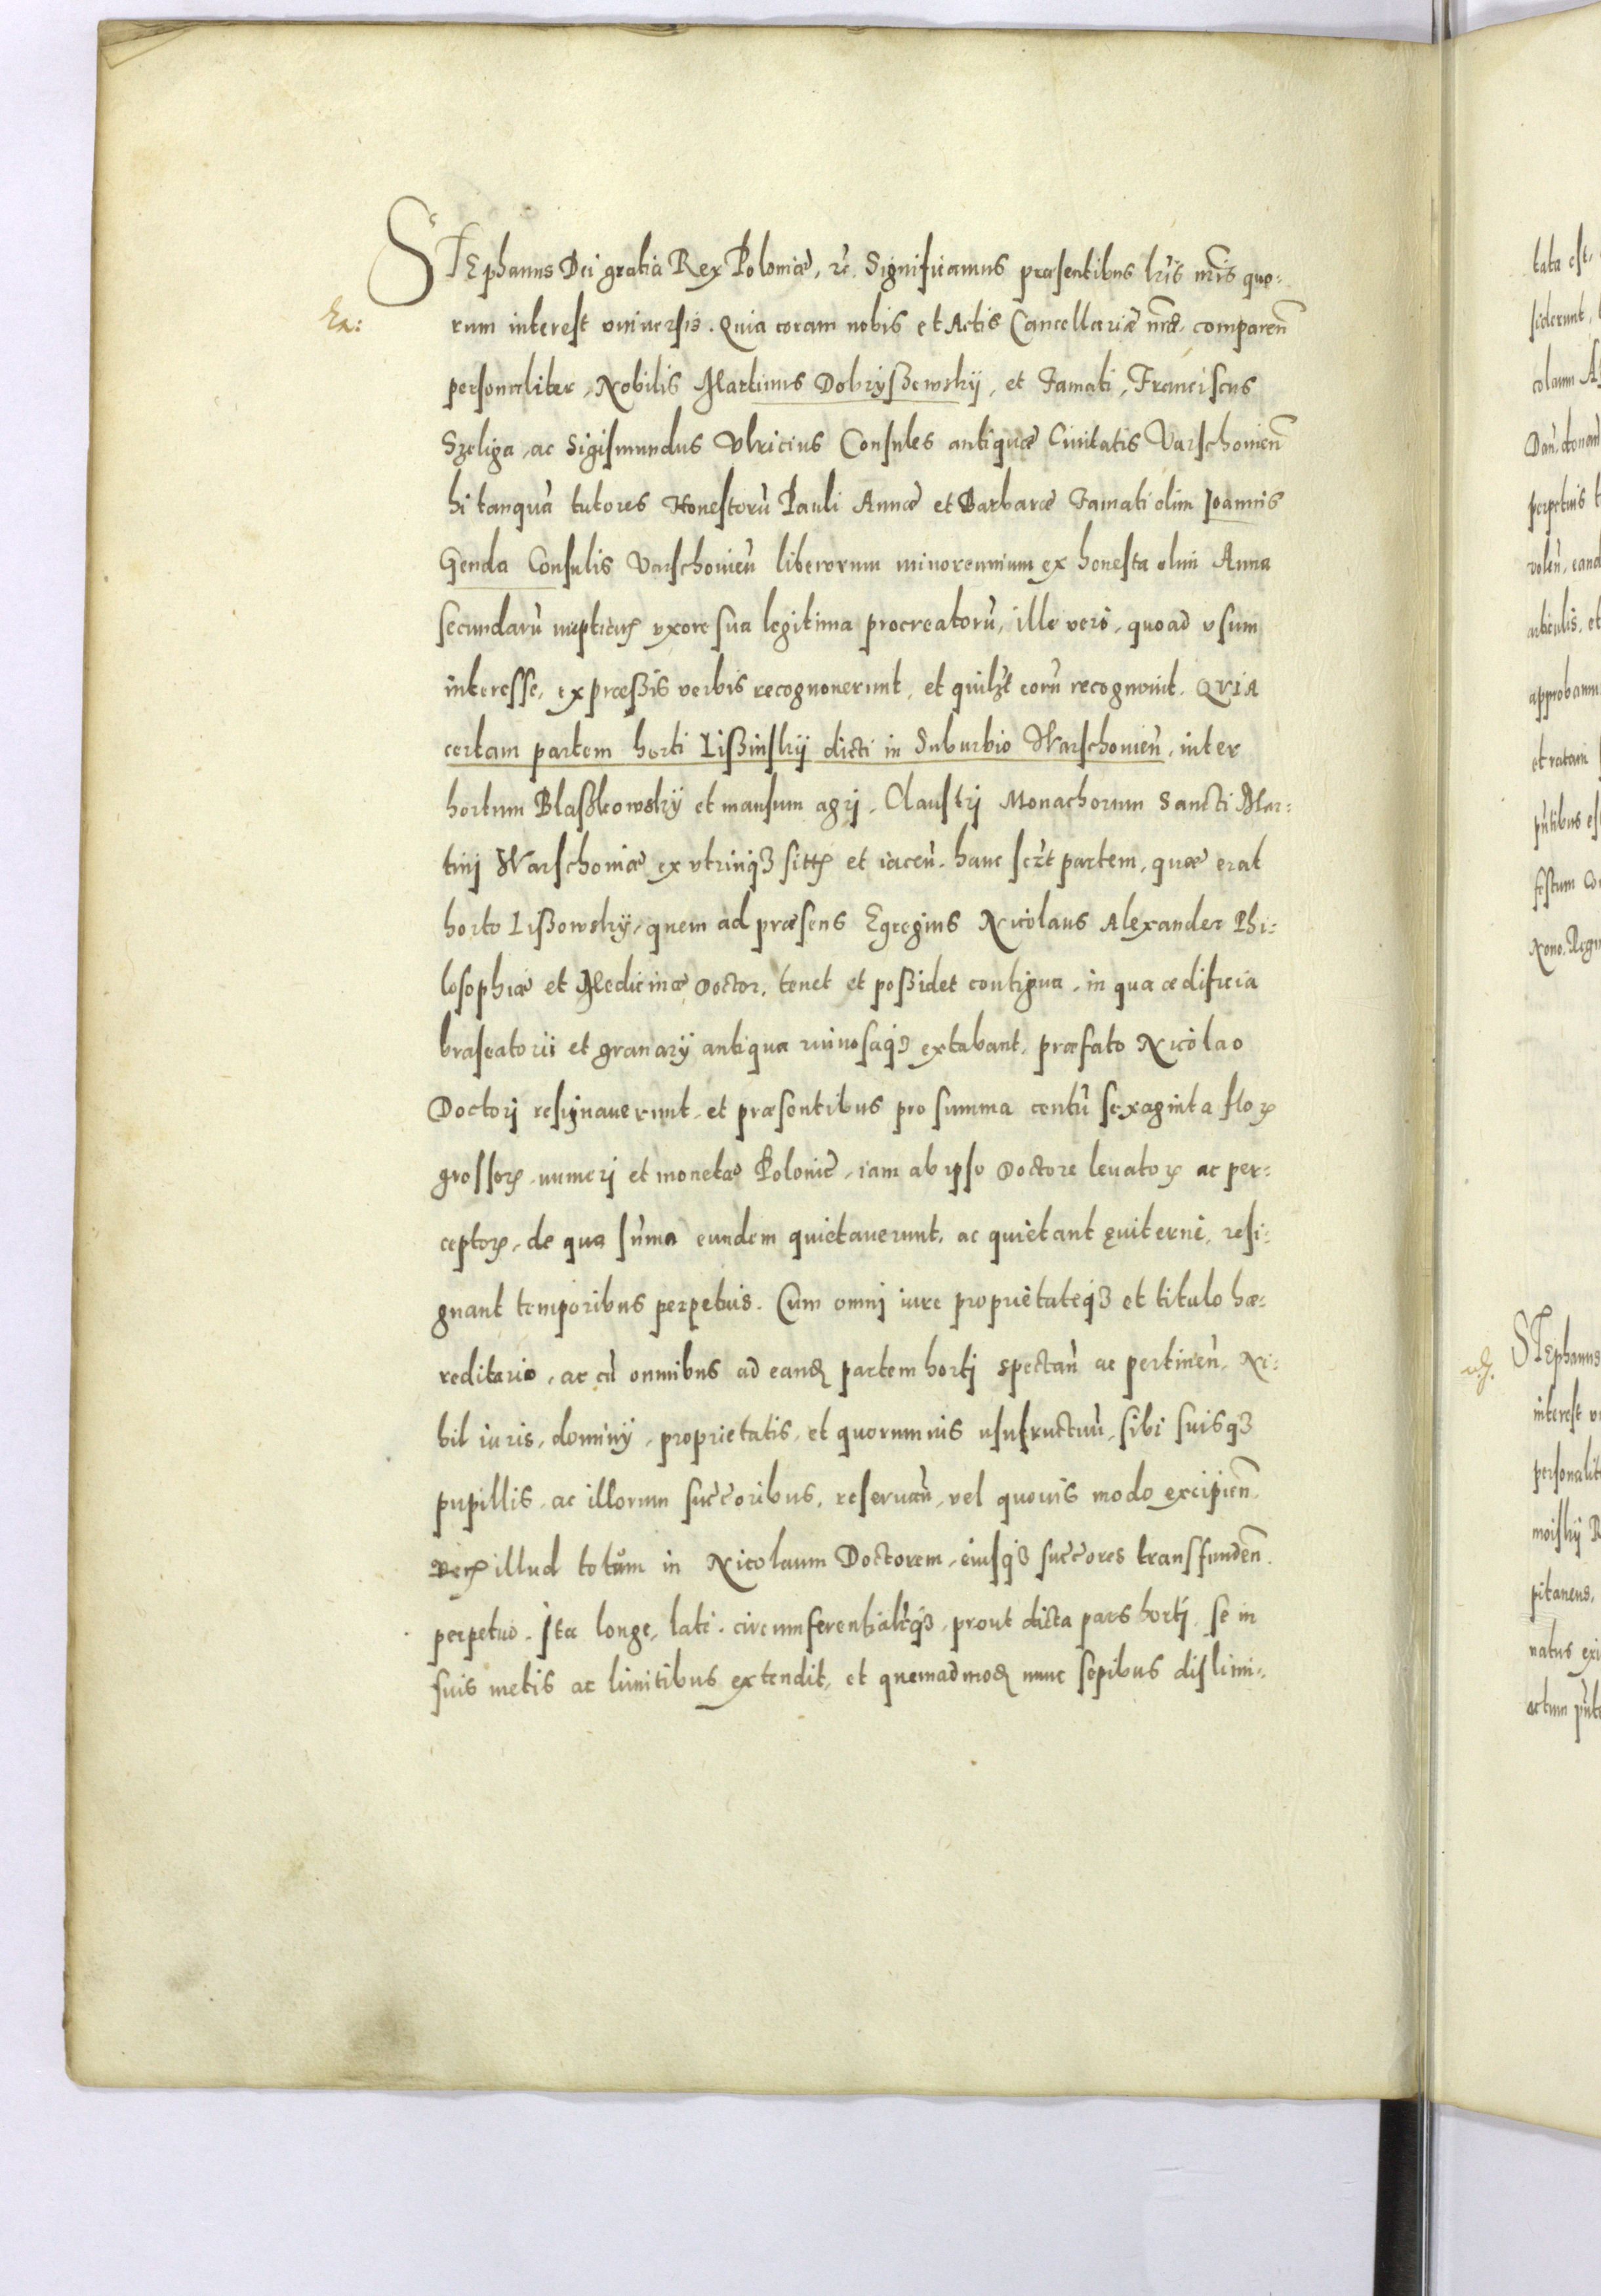 STEphanus Dei gratia Rex Poloniæ, ꝛc. Significamus præsentibus lrĩs nrĩs quo-
rum interest vniuersis. Quia coram nobis et Actis Cancellariæ nrã̃e comparen̄
personaliter, Nobilis Martinus Dobryßewskÿ, et Famati, Franciscus
Szeliga, ac Sigismundus Vlricius Consules antiquæ Ciuitatis Varschouien̄
hi tanquã tutores Honestorũ Pauli Annæ et Barbaræ Famati olim Joannis
Genda Consulis Varschouien̄ liberorum minorennium ex honesta olim Anna
secundarũ nuptiarꝝ vxore sua legitima procreatorũ, ille verò, quoad vsum
interesse, expræßis verbis recognouerunt, et quilꝫt eorũ recognouit. QVIA
certam partem horti Lißinskÿ dicti in Suburbio Warschouien̄, inter
hortum Blaßkowskÿ et mansum agrj, Claustrj Monachorum Sancti Mar-
tinj Warschouiæ ex vtrinqꝫ sittꝝ et iacen̄. hanc sczt partem, quæ erat
horto Lißowskÿ, quem ad præsens Egregius Nicolaus Alexander Phi-
losophiæ et Medicinæ Doctor, tenet et poßidet contigua, in qua ædificia
braseatorii et granarÿ antiqua ruinosaqꝫ extabant, præfato Nicòlao
Doctorj resignauerunt, et præsentibus pro summa centũ sexaginta floꝝ
grossorꝝ, numerj et monetæ Polonicẽ, iam ab ipso Doctore leuatoꝝ ac per-
ceptorꝝ, de qua sũma eundem quietauerunt, ac quietant ęuiternè, resi-
gnant temporibus perpetuis. Cum omnj iure proprietateqꝫ et titulo hæ-
reditario, ac cũ omnibus ad eandꝫ partem hortj spectan̄ ac pertinen̄. Ni-
hil iuris, dominÿ, proprietatis, et quorumuis usufructuũ, sibi suisqꝫ
pupillis, ac illorum succ̃oribus, reseruan̄, vel quouis modo excipien̄.
Verꝝ illud totũm in Nicolaum Doctorem, eiusqꝫ succ̃ores transfunden̄
perpetuò. Ita longe, latè, circumferentialitẽqꝫ, prout dicta pars hortj, se in
suis metis ac limitibus extendit, et quemadmodꝫ nunc sepibus dislimi-
tata est,
siderunt,
perpetuis
articulis, et
et ratam
STEphanus
interest